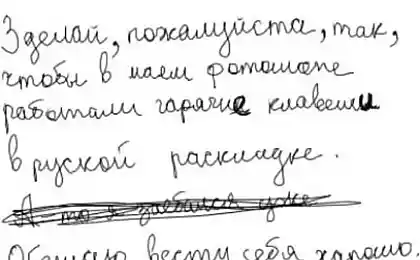 Зделай, пожалуйста, так,
чтобы в маем фотошопе
работали гарячие клавеши
в руской раскладке.
А то я заебался уже
Обещаю вести себя харашо.